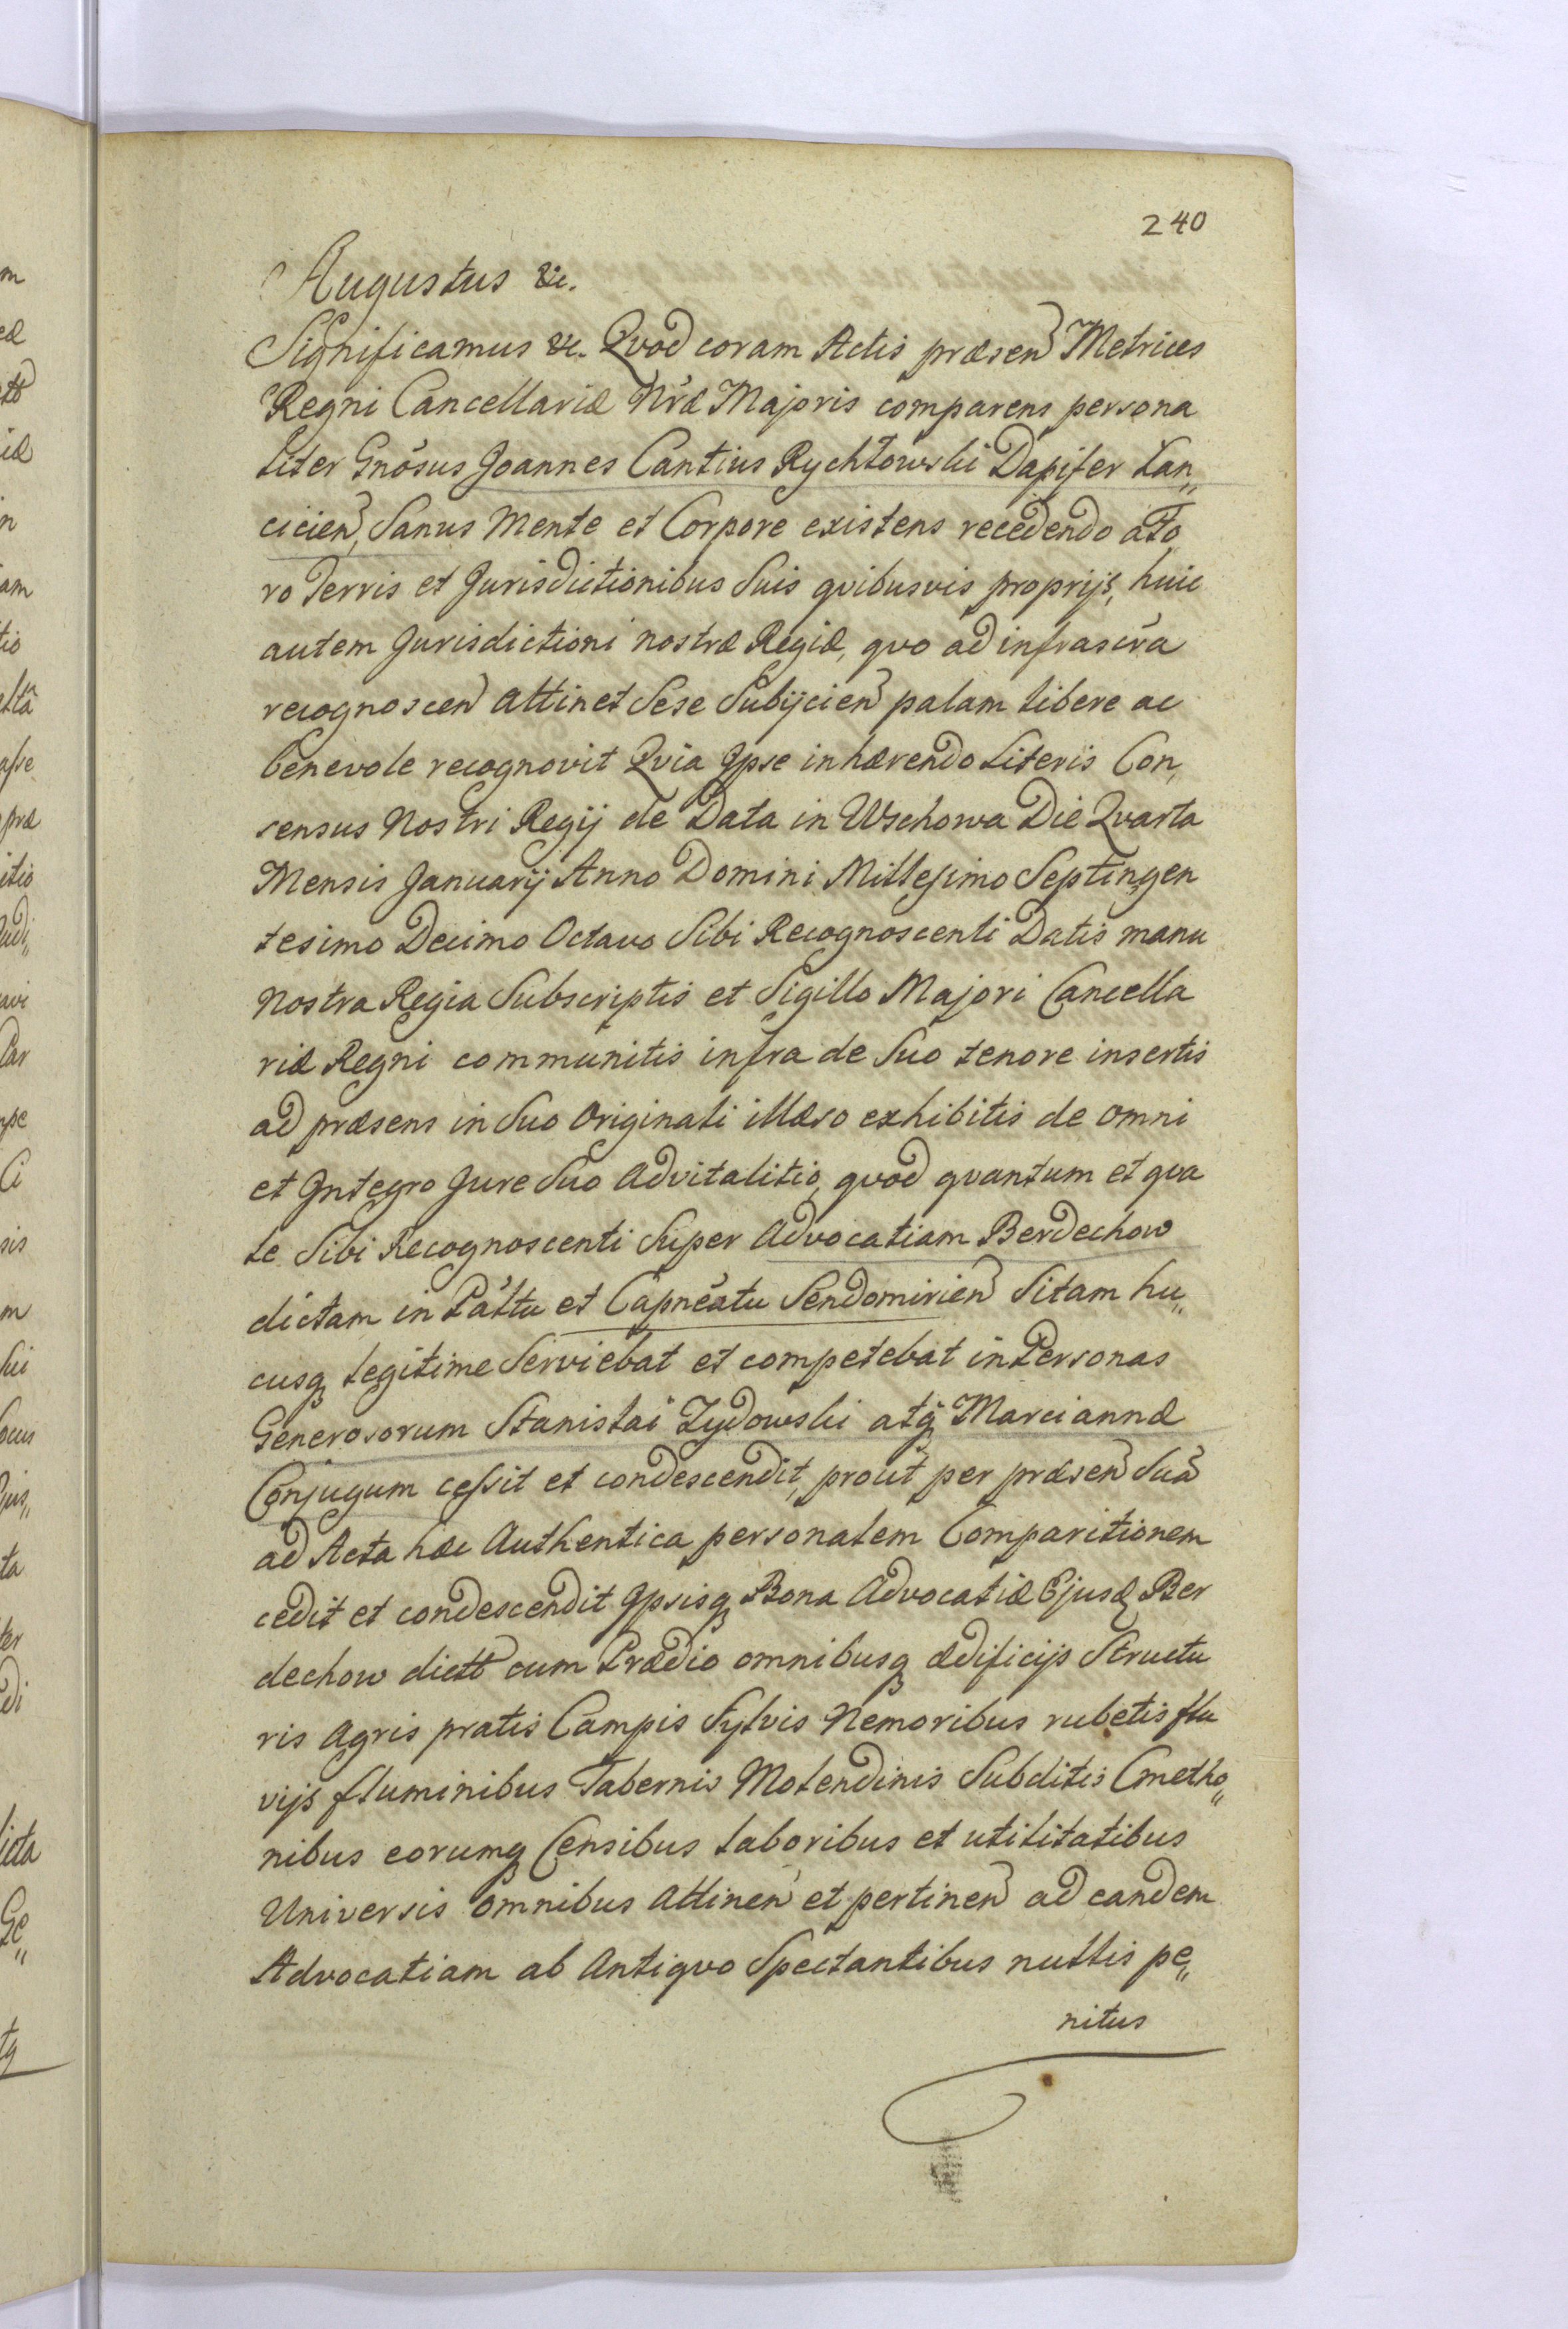 240
Augustus &c.
Significamus &c. Qvod coram Actis præsen Metrices
Regni Cancellariæ Nræ Majoris comparens persona
liter Gnosus Joannes Cantius Rychłowski Dapifer Łan„
cicien, Sanus Mente et Corpore existens recedendo a Fo,
ro Terris et Jurisdictionibus Suis qvibusvis proprijs, huic
autem Jurisdictioni nostræ Regiæ, qvo ad infrascra
recognoscen attinet Sese Subijcien palam libere ac
benevole recognovit Qvia Ipse inhærendo Literis Con,
sensus Nostri Regij de Data in Wschowa Die Qvarta
Mensis Januarij Anno Domini Millesimo Septingen
tesimo Decimo Octavo Sibi Recognoscenti Datis manu
Nostra Regia Subscriptis et Sigillo Majori Cancella
riæ Regni communitis infra de Suo tenore insertis
ad præsens in Suo Originali illæso exhibitis de omni
et Integro Jure Suo Advitalitio, qvod qvantum et qva
le Sibi Recognoscenti Super Advocatiam Berdechow
dictam in Palttu et Capneatu Sendomirien Sitam hu„
cusq legitime Serviebat et competebat in Personas
Generosorum Stanislai Zydowski atq Mariannæ
Conjugum cessit et condescendit, prout per præsen Sua
ad Acta hæc Authentica personalem Comparitionem
cedit et condescendit Ipsisq Bona Advocatiæ Ejusd Ber
dechow dictt cum Prædio omnibusq ædificijs Structu
ris Agris pratis Campis Sylvis Nemoribus rubetis flu
vijs fluminibus Tabernis Molendinis Subditis Cmetho„
nibus eorumq Censibus laboribus et utilitatibus
Universis omnibus Attinen et pertinen ad eandem
Advocatiam ab Antiqvo Spectantibus nullis pe„
nitus